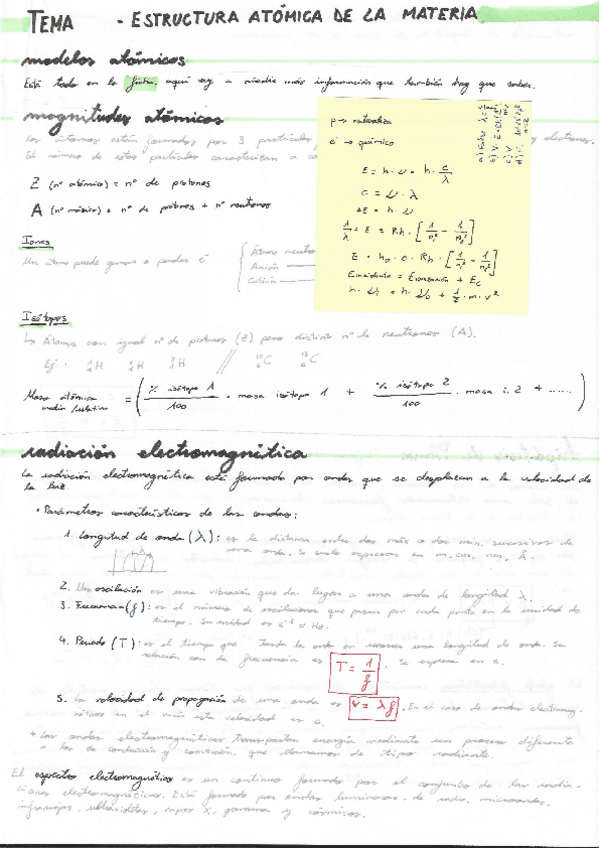 TEMA - ESTRUCTURA ATÓMICA DE LA MATERIA
modelos atómicos
Está todo en la ficha, aquí voy a añadir más información que también hay que saber.
magnitudes atómicas
Los átomos están formados por 3 partículas y electrones.
El número de estas partículas caracterizan a
Z (nº atómico) = nº de protones
A (nº másico) = nº de protones + nº neutrones
p → naturaleza
e⁻ → químico
E = h · ν = h · c/λ
c = ν · λ
ΔE = h · ν
1/λ = E = Rh · [1/n₁² - 1/n₂²]
E = h · c · Rh · [1/n₁² - 1/n₂²]
E incidente = E extracción + Ec
h · ν = h · ν₀ + 1/2 · m · v²
Iones
Un átomo puede ganar o perder e⁻
Átomo neutro
Anión
Catión
Isótopos
Átomos con igual nº de protones (Z) pero distinto nº de neutrones (A).
Ej: H H H // C C
Masa atómica = ( % isótopo 1 / 100 · masa isótopo 1 + % isótopo 2 / 100 · masa i. 2 + ...... )
media/relativa
radiación electromagnética
La radiación electromagnética está formada por ondas que se desplazan a la velocidad de
la luz
• Parámetros característicos de las ondas:
1. Longitud de onda (λ): es la distancia entre dos máx o dos min. sucesivos de
una onda. Se suele expresar en m, cm, nm, Å.
2. Una oscilación es una vibración que da lugar a una onda de longitud λ.
3. Frecuencia (f): es el número de oscilaciones que pasan por cada punto en la unidad de
tiempo. Su unidad es s⁻¹ o Hz.
4. Periodo (T): es el tiempo que tarda la onda en recorrer una longitud de onda. Su
relación con la frecuencia es T = 1/f. Se expresa en s.
5. La velocidad de propagación de una onda es v = λf. En el caso de ondas electromag-
néticas en el vacío esta velocidad es c.
+ Las ondas electromagnéticas transportan energía mediante un proceso diferente
a los de conducción y convección, que llamamos de tipo radiante.
El espectro electromagnético es un continuo formado por el conjunto de las radia-
ciones electromagnéticas. Está formado por ondas luminosas, de radio, microondas,
infrarrojas, ultravioletas, rayos X, gamma y cósmicos.